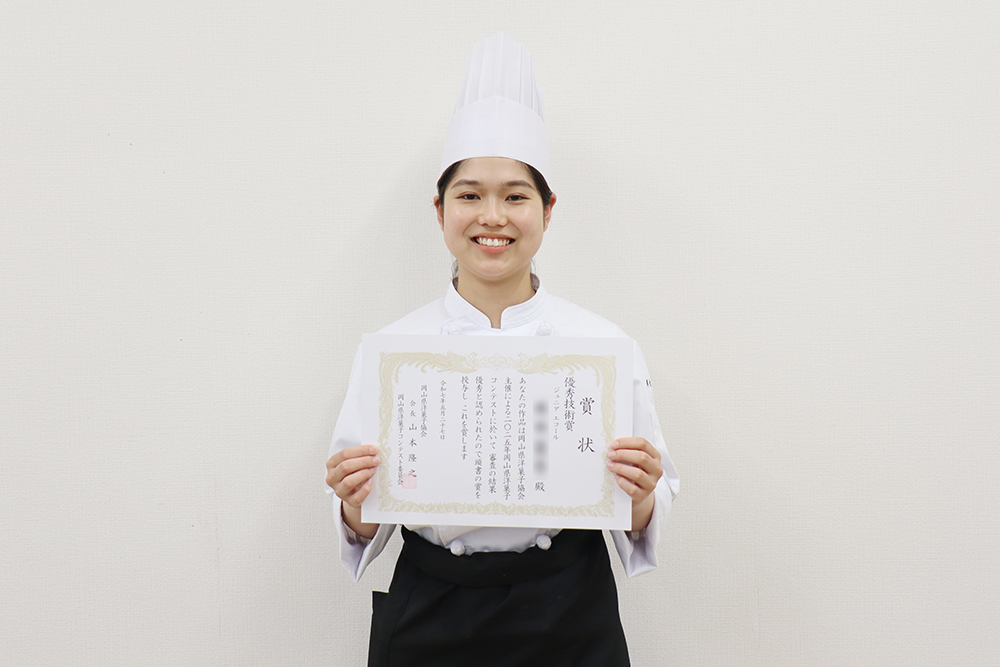 賞状
優秀技術賞
ジュニア エコール
殿
あなたの作品は岡山県洋菓子協会
主催による二〇二五年岡山県洋菓子
コンテストに於いて 審査の結果
優秀と認められたので頭書の賞を
授与し これを賞します
令和七年五月二十七日
岡山県洋菓子協会
会長 山本隆之
岡山県洋菓子コンテスト委員会